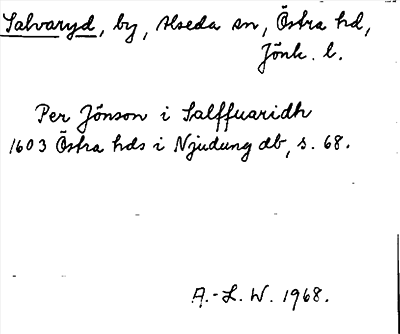 Salvaryd, by, Alseda sn, Östra hd,
Jönk. l.
Per Jönson i Salffuaridh
1603 Östra hds i Njudung db, s. 68.
A.-L. W. 1968.